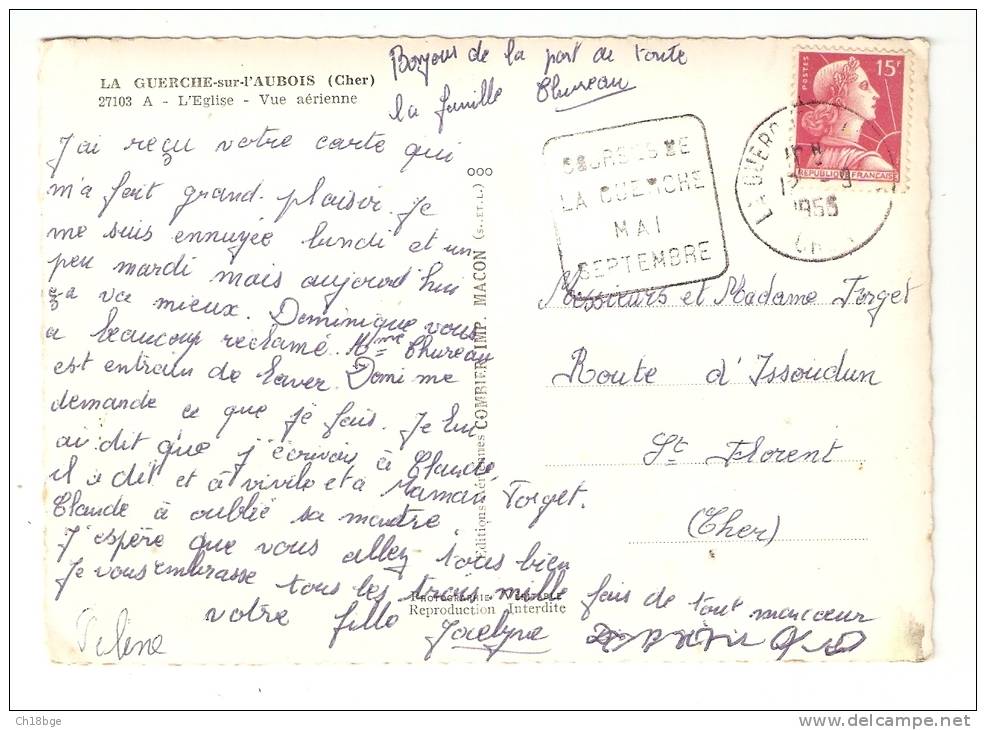 LA GUERCHE-sur-l'AUBOIS (Cher)
27103 A - L'Eglise - Vue aérienne
Bonjour de la part de toute
la famille Thureau
J'ai reçu votre carte qui
m'a fait grand plaisir. Je
me suis ennuyée lundi et un
peu mardi mais aujourd'hui
ça va mieux. Dominique vous
a beaucoup reclamé. Mme Thureau
est entrain de laver. Domi me
demande ce que je fais. Je lui
ai dit que j'écrivais à Claude,
il a dit et à vivile et à Maman Forget.
Claude à oublié sa montre.
J'espère que vous allez tous bien
Je vous embrasse tous les trois mille fois de tout mon cœur
votre fille Jocelyne
POSTES
15F
REPUBLIQUE FRANÇAISE
LA GUERC
1955
COURSES DE
LA GUERCHE
MAI
SEPTEMBRE
Messieurs et Madame Forget
Route d'Issoudun
St Florent
(Cher)
Editions Aériennes COMBIER IMP. MACON (S.-ET-L.)
PHOTOGRAPHIE VÉRITABLE
Reproduction Interdite
Ch18bge
http://www.delcampe.net